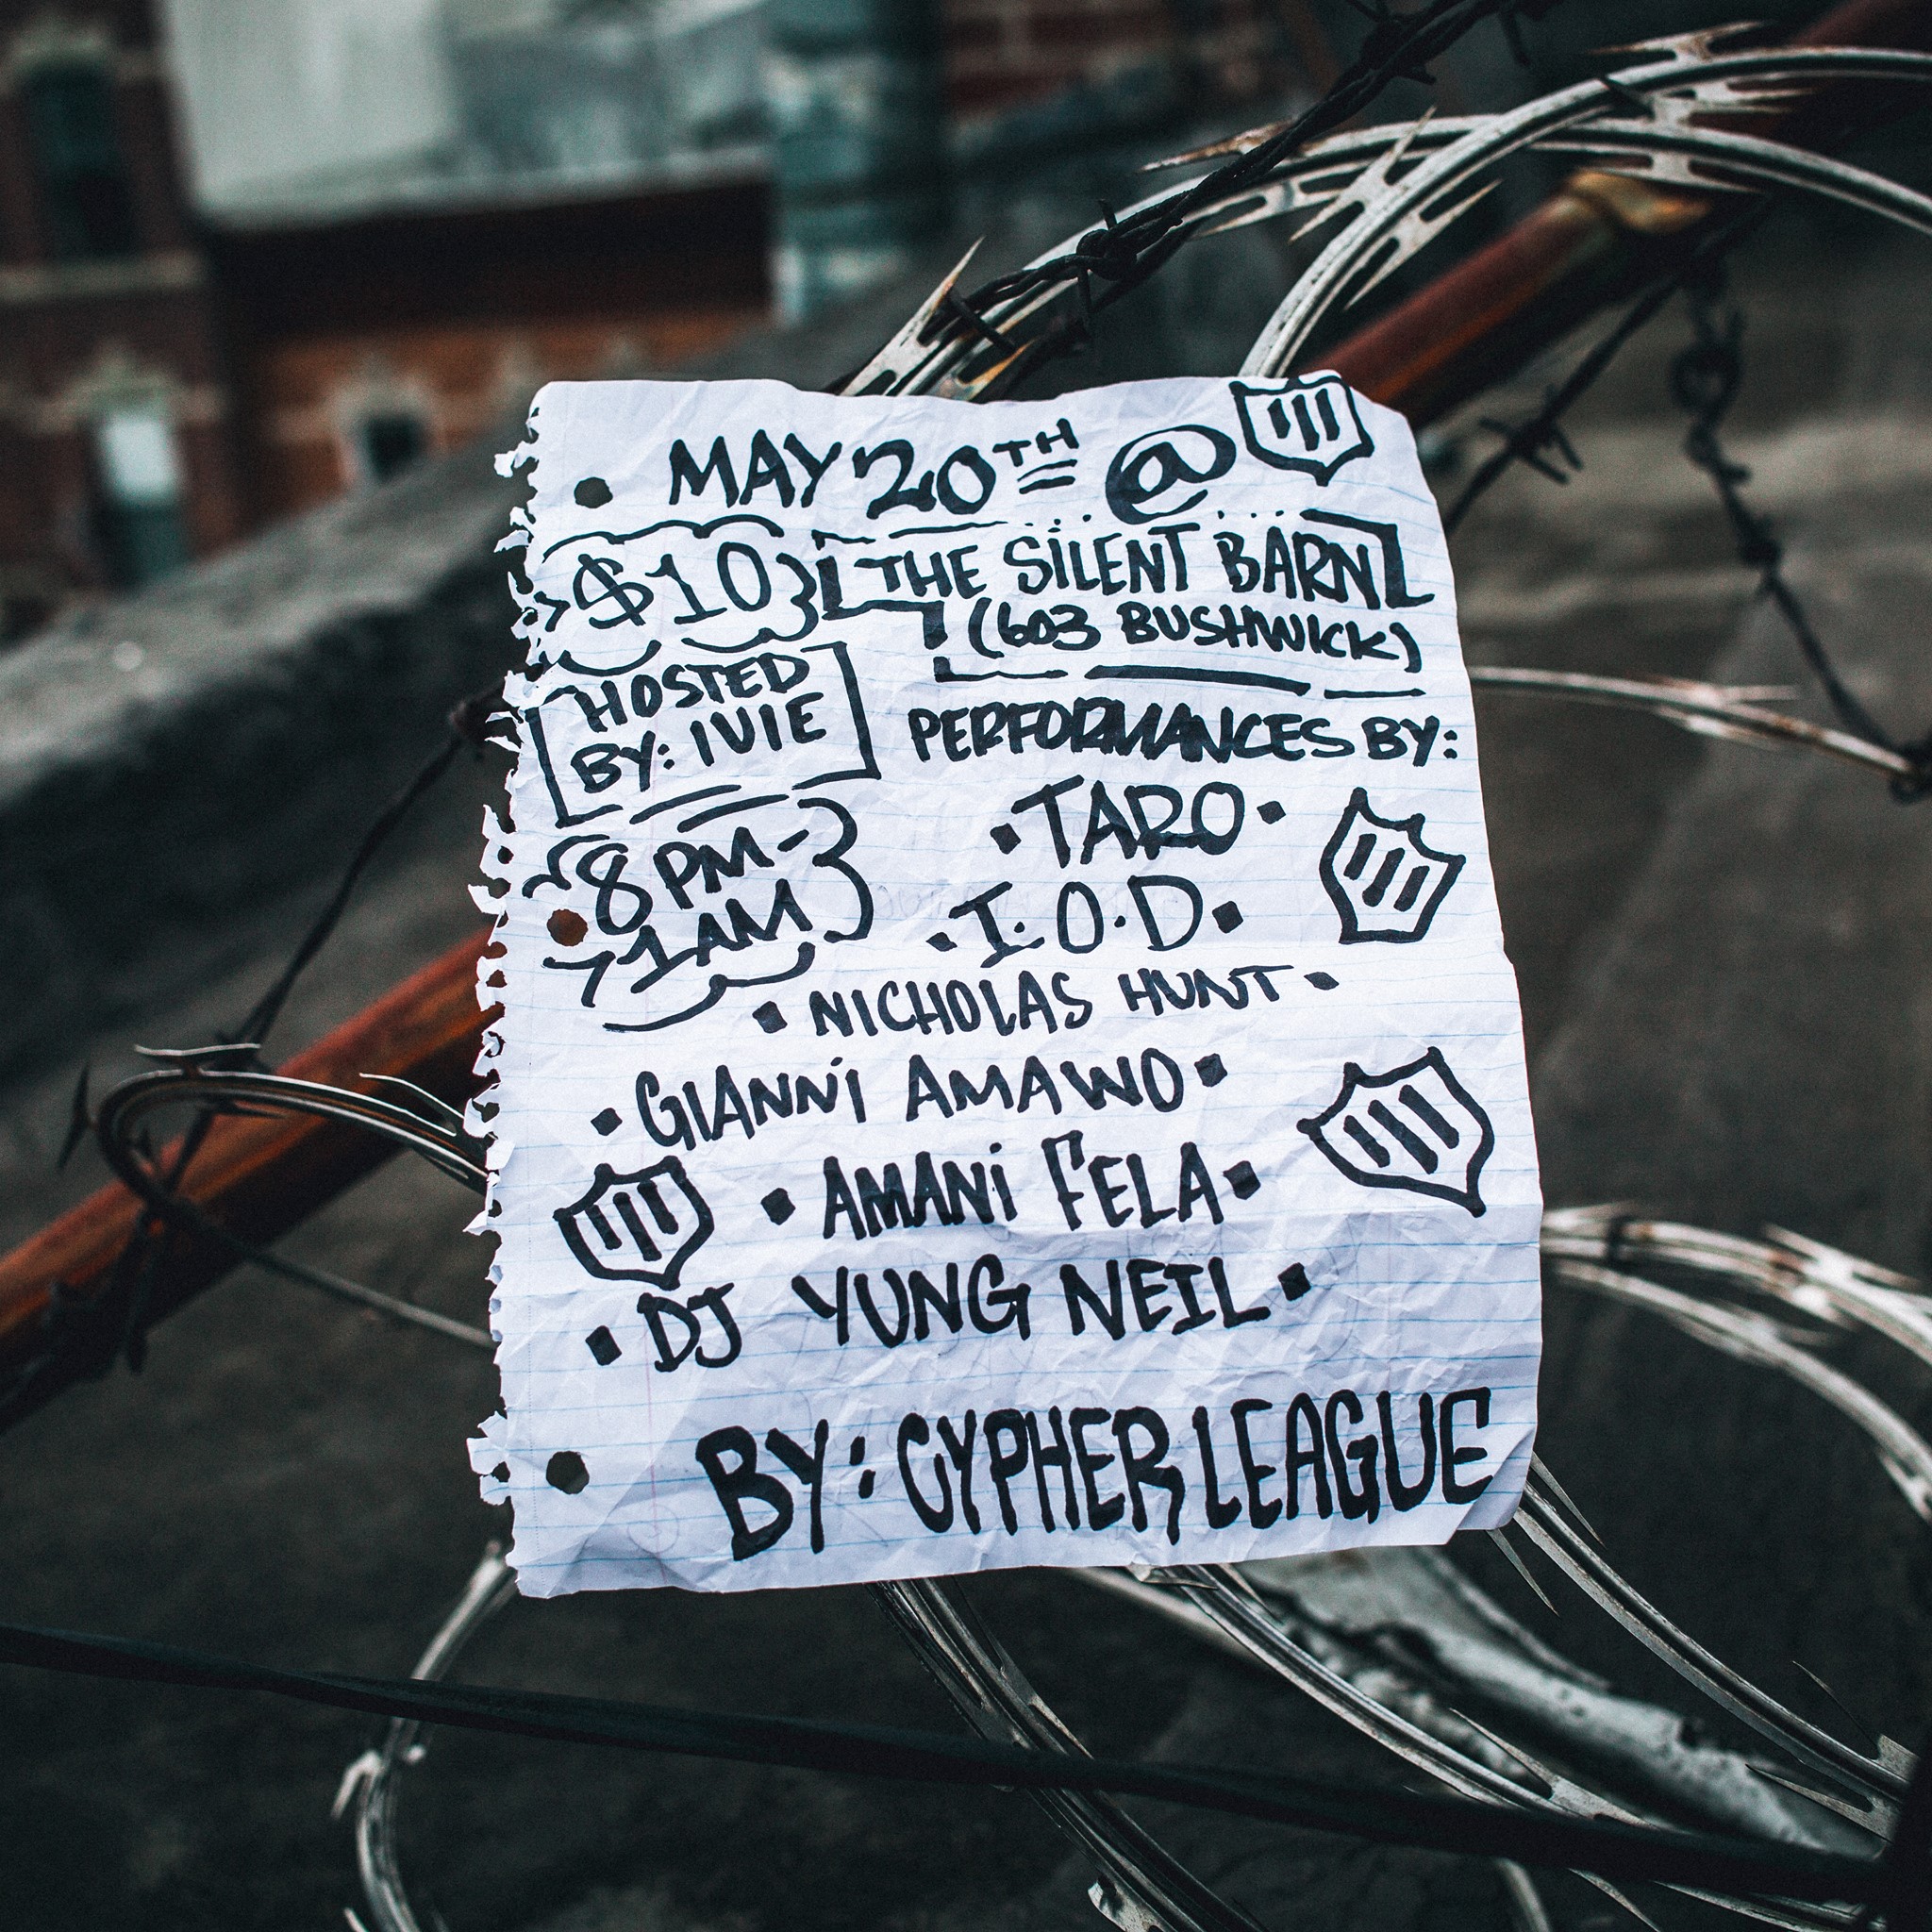 MAY 20TH @
$10
THE SiLENT BARN
(603 BUSHWICK)
HOSTED
BY: IVIE
8 PM-
1 AM
PERFORMANCES BY:
• TARO •
• I.O.D •
• NICHOLAS HUNT •
• GIANNi AMAWO •
• AMANi FELA •
• DJ YUNG NEIL •
BY: CYPHER LEAGUE